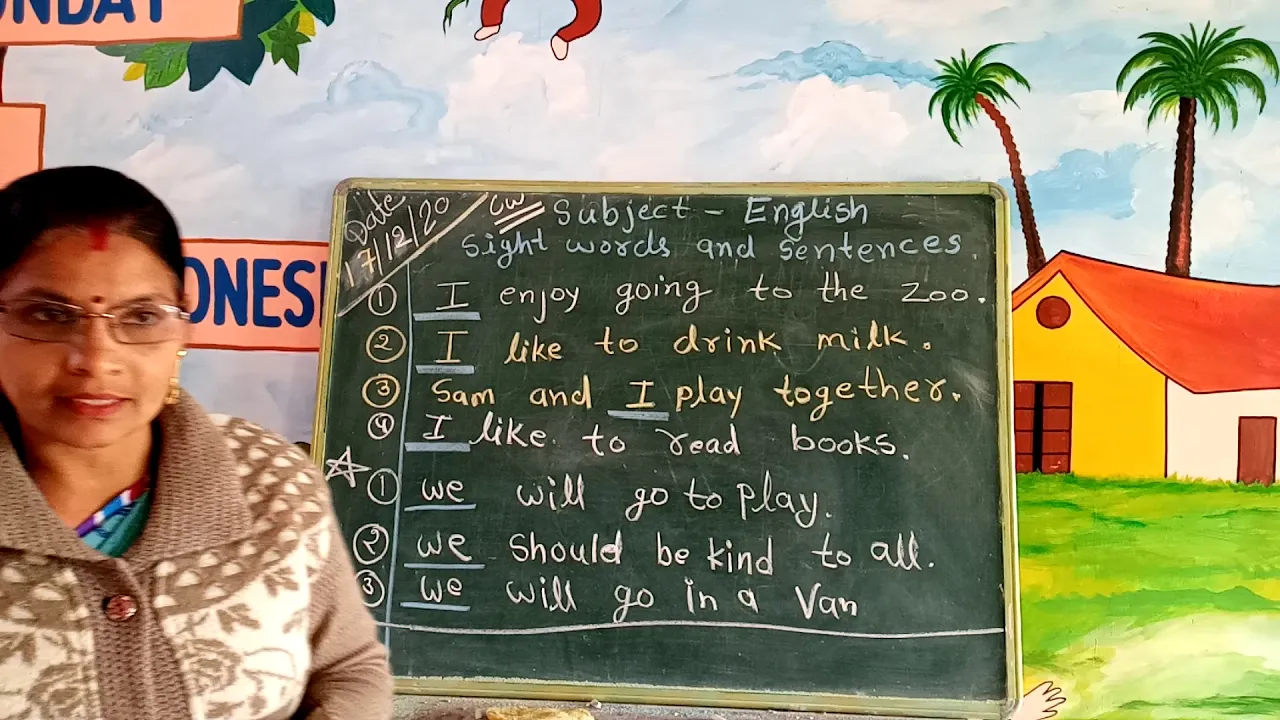 UNDAY
ONES
Date
17/12/20
CW
Subject - English
Sight words and sentences.
① I enjoy going to the zoo.
② I like to drink milk.
③ Sam and I play together.
④ I like to read books.
① we will go to play.
② we should be kind to all.
③ we will go in a Van